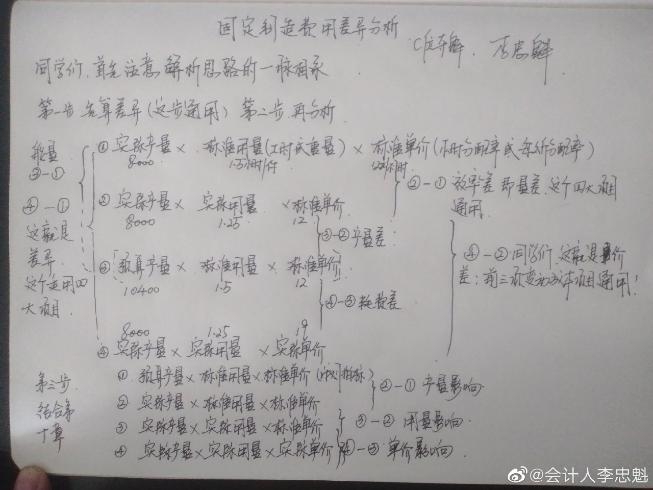 固定制造费用差异分析
同学们,首先注意解析思路的一脉相承
第一步 先算差异(这步通用) 第二步 再分析
① 实际产量 × 标准用量(工时或重量) × 标准单价(小时分配率或每斤分配率)
8000
③-①
④-①
这就是
差异
这个通用四
大项目
②-① 效率差 即量差,这个四大项目
通用
② 实际产量 × 实际用量 × 标准单价
8000 1.25 12
③-②产量差
③ 预算产量 × 标准用量 × 标准单价
10400 1.5 12
④-③耗费差
④-② 同学们,这就是价
差:前三项变动成本项目通用!
8000 1.25 19
④ 实际产量 × 实际用量 × 实际单价
第三步
结合第
十章
① 预算产量 × 标准用量 × 标准单价
② 实际产量 × 标准用量 × 标准单价
②-① 产量影响
③ 实际产量 × 实际用量 × 标准单价
③-② 用量影响
④ 实际产量 × 实际用量 × 实际单价
④-③ 单价影响
@会计人李忠魁